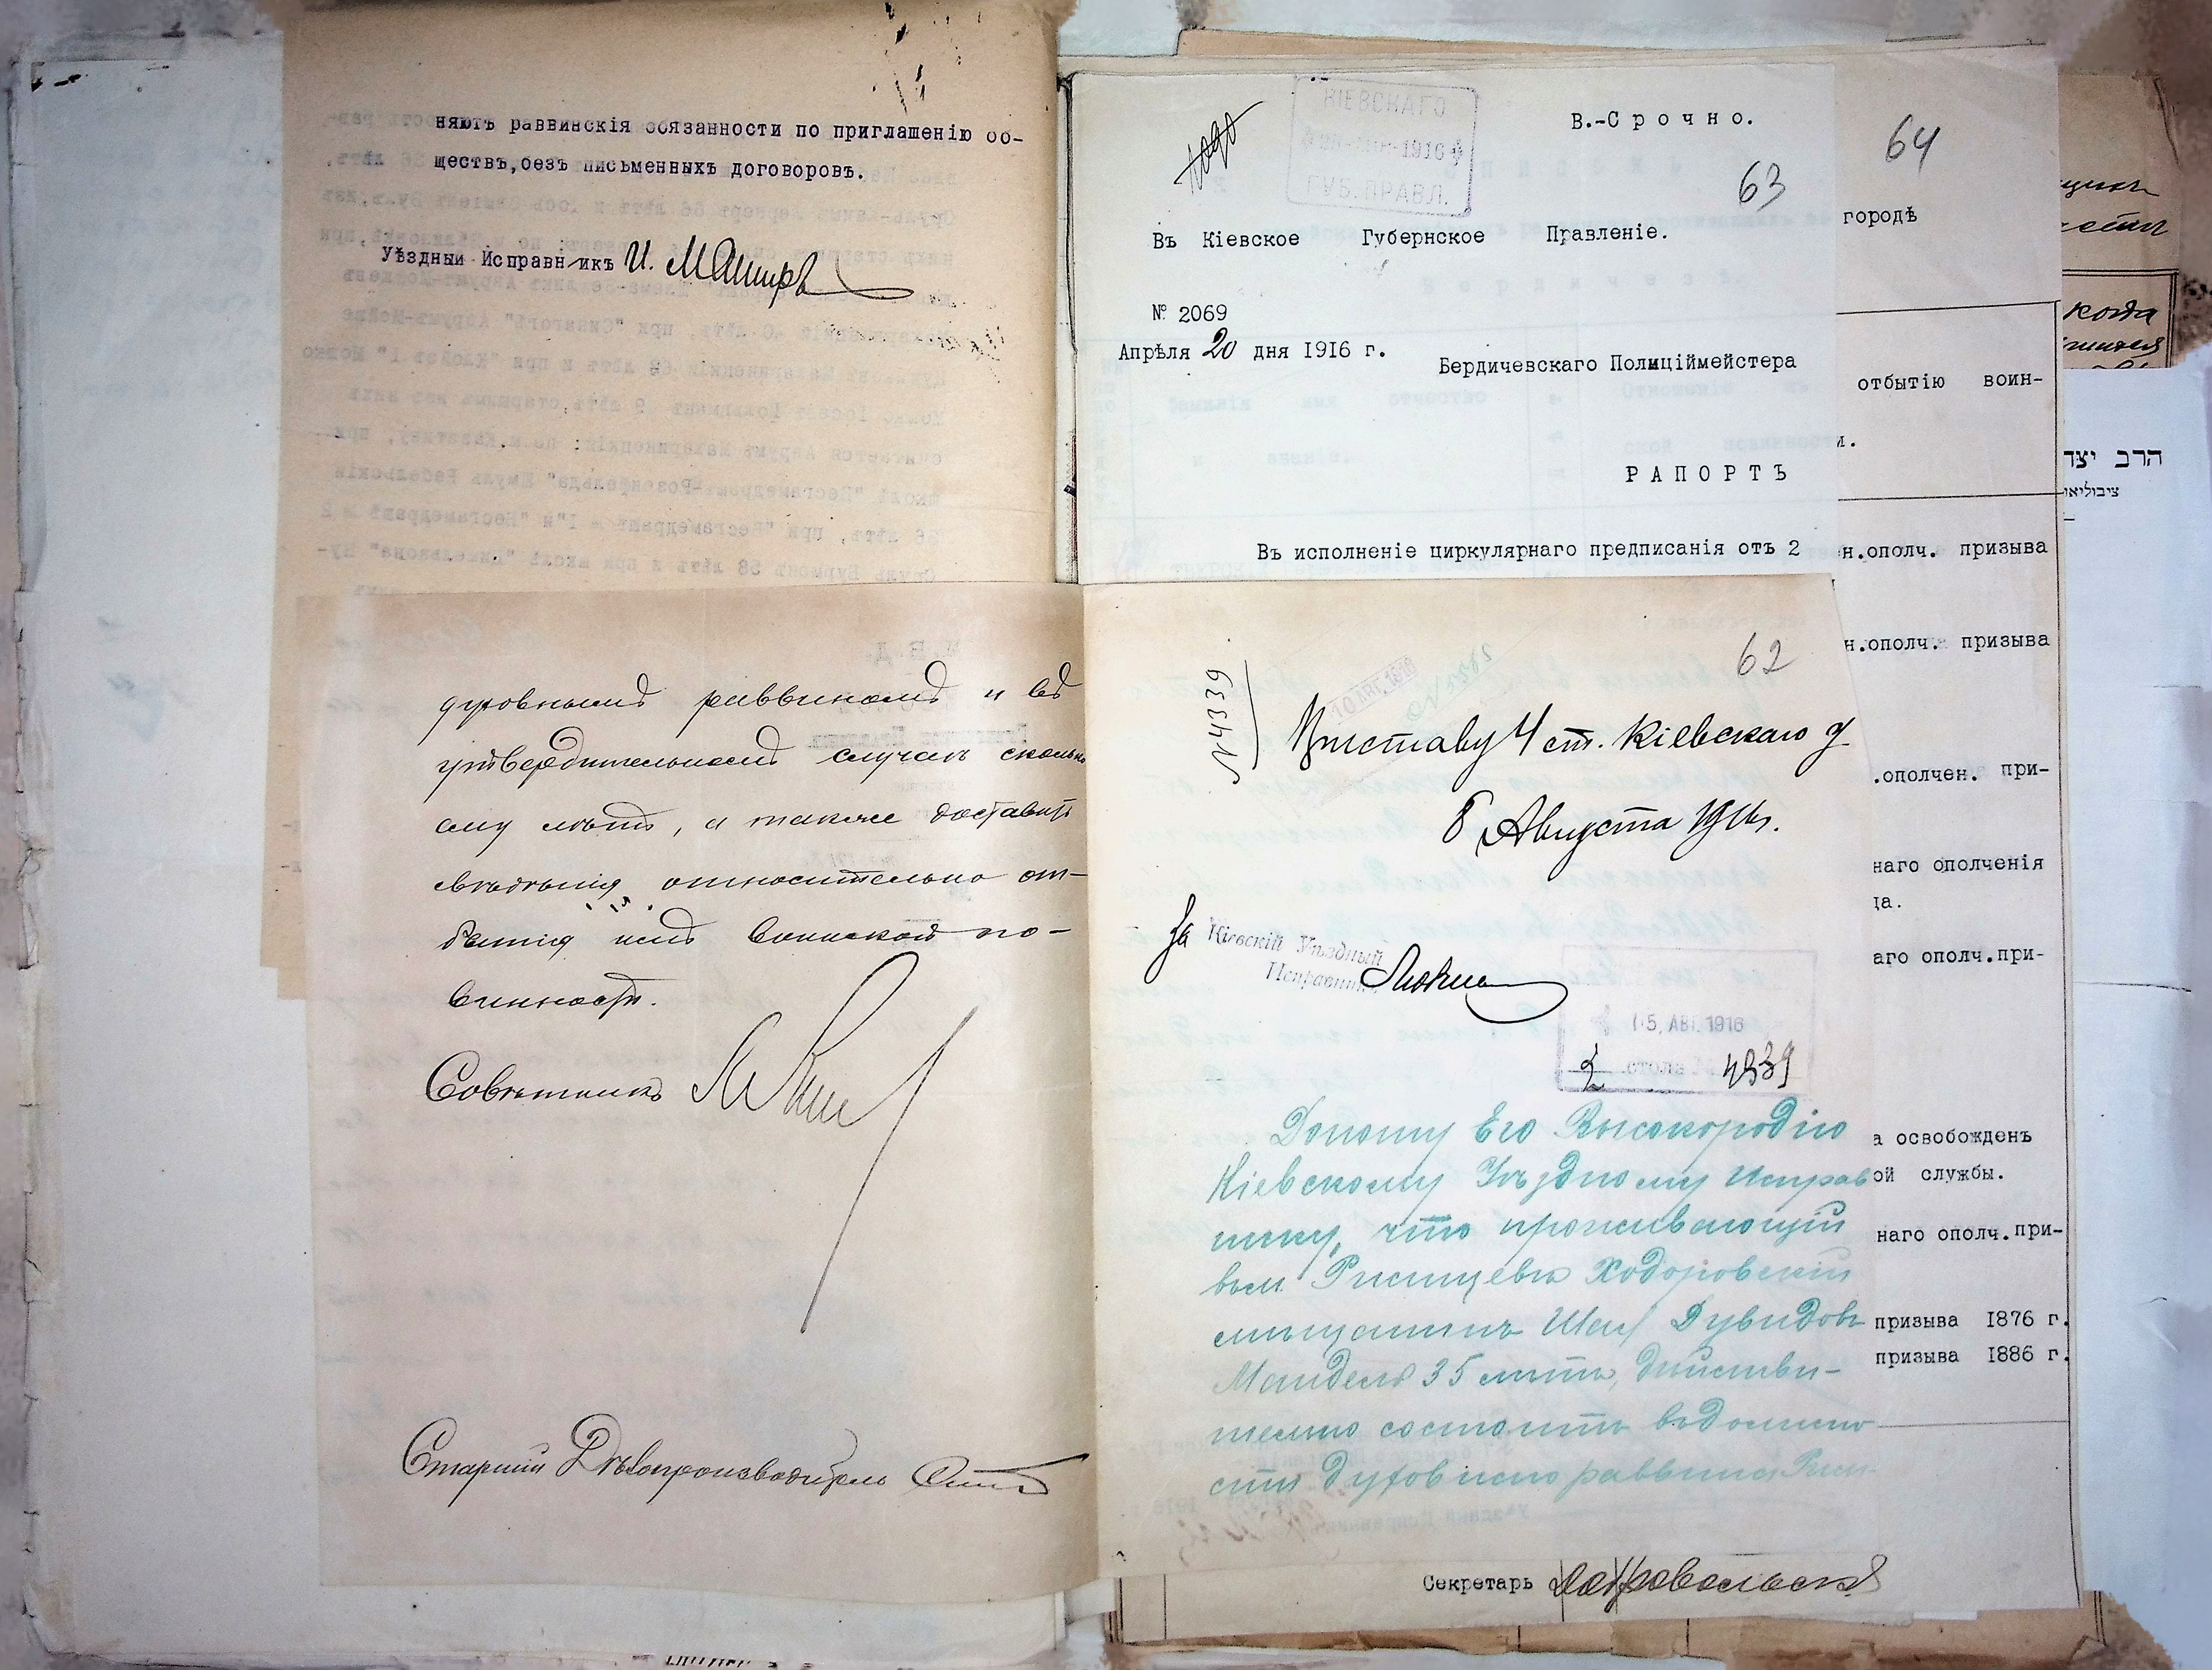 няютъ раввинскія обязанности по приглашенію об-
ществъ,безъ письменныхъ договоровъ.
Уѣздный Исправникъ
КІЕВСКАГО
1916
ГУБ.ПРАВЛ.
В.-Срочно.
63
Въ Кіевское Губернское Правленіе.
№ 2069
Апрѣля 20 дня 1916 г.
Бердичевскаго Полиціймейстера
РАПОРТЪ
Въ исполненіе циркулярнаго предписанія отъ 2
64
городѣ
отбытію воин-
и.
н.ополч. призыва
н.ополч. призыва
.ополчен. при-
наго ополченія
ца.
аго ополч.при-
а освобожденъ
ой службы.
наго ополч.при-
призыва 1876 г.
призыва 1886 г.
Секретарь
когда
הרב יצד
ציבוליאו
духовнымъ раввиномъ и въ
утвердительномъ случаѣ сколько
ему лѣтъ, а также доставить
свѣдѣнія относительно от-
бытія имъ воинской по-
винности.
Совѣтникъ
Старшій Дѣлопроизводитель
62
№4339
Приставу 4 ст. Кіевскаго у
8 Августа 1916г.
За Кіевскій Уѣздный
Исправникъ
15. АВГ. 1916
2 стола 4339
Доношу Его Высокородію
Кіевскому Уѣздному Исправ
нику, что проживающій
въ м. Ржищевѣ Ходоровскій
мѣщанинъ Шая Дувидовъ
Мандель 35 лѣтъ, дѣйстви-
тельно состоитъ въ должно
сти духовнаго раввина